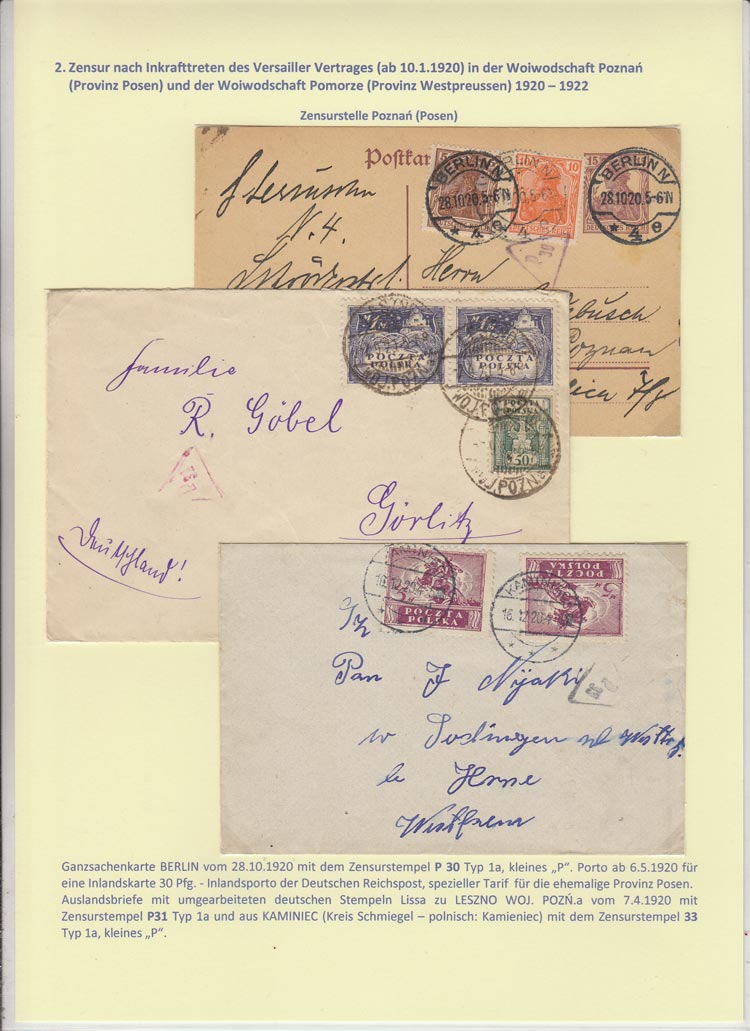 2. Zensur nach Inkrafttreten des Versailler Vertrages (ab 10.1.1920) in der Woiwodschaft Poznań
(Provinz Posen) und der Woiwodschaft Pomorze (Provinz Westpreussen) 1920 – 1922
Zensurstelle Poznań (Posen)
Postkar
BERLIN N
28.10.20.5-6N
* 4 e
10
15
BERLIN N
28.10.20.5-6N
* 4 e
N. 4.
Herrn
Poznan
POCZTA
POLSKA
POCZTA
POLSKA
Familie
R. Göbel
50
POZN
Görlitz
Deutschland!
KAMIN
16.12.20
POCZTA
POLSKA
POCZTA
POLSKA
KAMIN
16.12.20
Pan J Nijaki
w Sodingen
Westfalen
Ganzsachenkarte BERLIN vom 28.10.1920 mit dem Zensurstempel P 30 Typ 1a, kleines „P“. Porto ab 6.5.1920 für
eine Inlandskarte 30 Pfg. - Inlandsporto der Deutschen Reichspost, spezieller Tarif für die ehemalige Provinz Posen.
Auslandsbriefe mit umgearbeiteten deutschen Stempeln Lissa zu LESZNO WOJ. POZŃ.a vom 7.4.1920 mit
Zensurstempel P31 Typ 1a und aus KAMINIEC (Kreis Schmiegel – polnisch: Kamieniec) mit dem Zensurstempel 33
Typ 1a, kleines „P“.